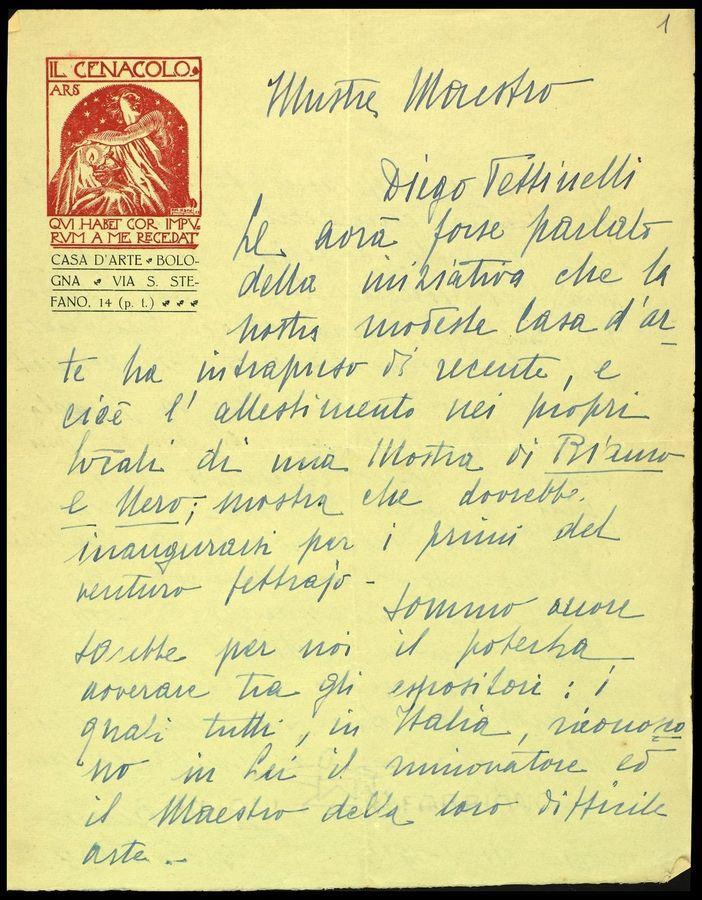 1
IL CENACOLO
ARS
QVI HABET COR IMPV
RVM A ME RECEDAT
CASA D'ARTE BOLO-
GNA VIA S. STE-
FANO, 14 (p. t.)
Illustre Maestro
Diego Pettinelli
Le avrà forse parlato
della iniziativa che la
nostra modesta Casa d'ar-
te ha intrapreso di recente, e
cioè l'allestimento nei propri
locali di una Mostra di Bianco
e Nero; mostra che dovrebbe
inaugurarsi per i primi del
venturo febbrajo -
Sommo onore
sarebbe per noi il poterla
noverare tra gli espositori: i
quali tutti, in Italia, ricono=sco
no in Lei il rinnovatore ed
il Maestro della loro difficile
arte. -